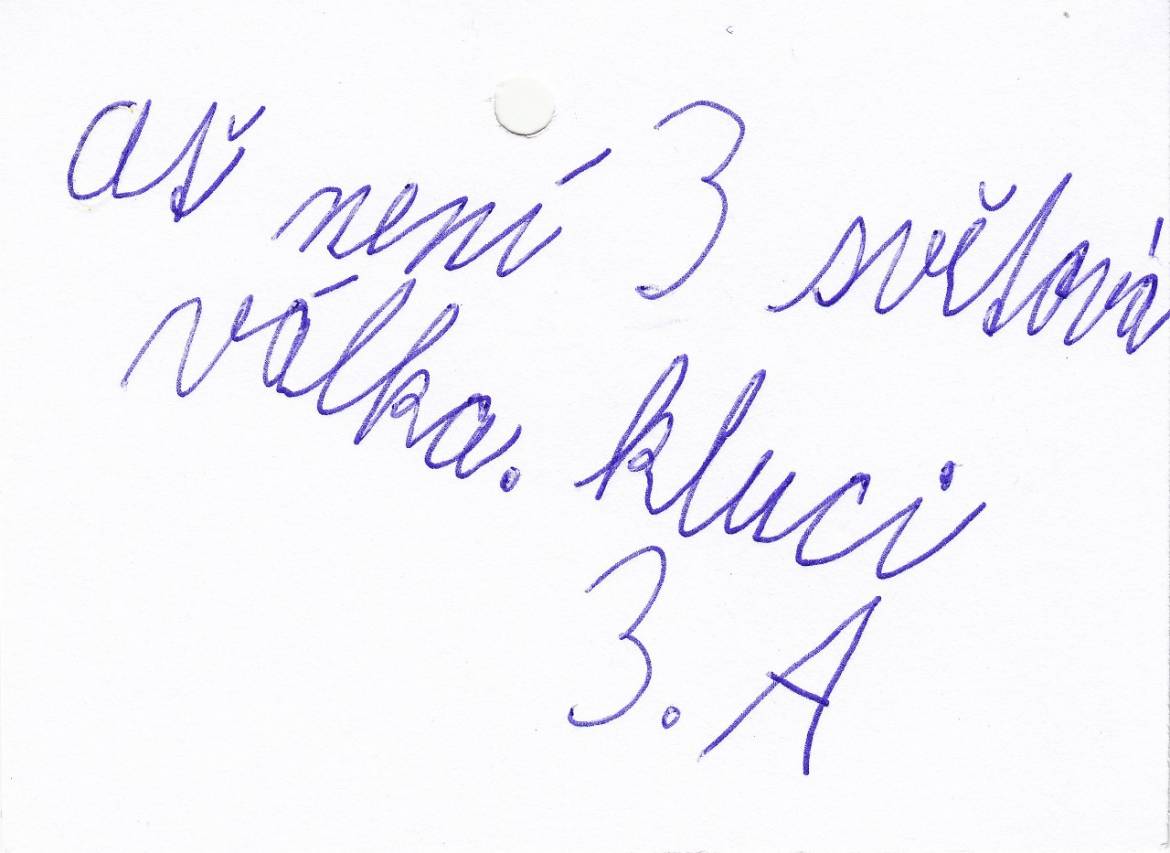 aš není 3 světová
válka. kluci
3. A